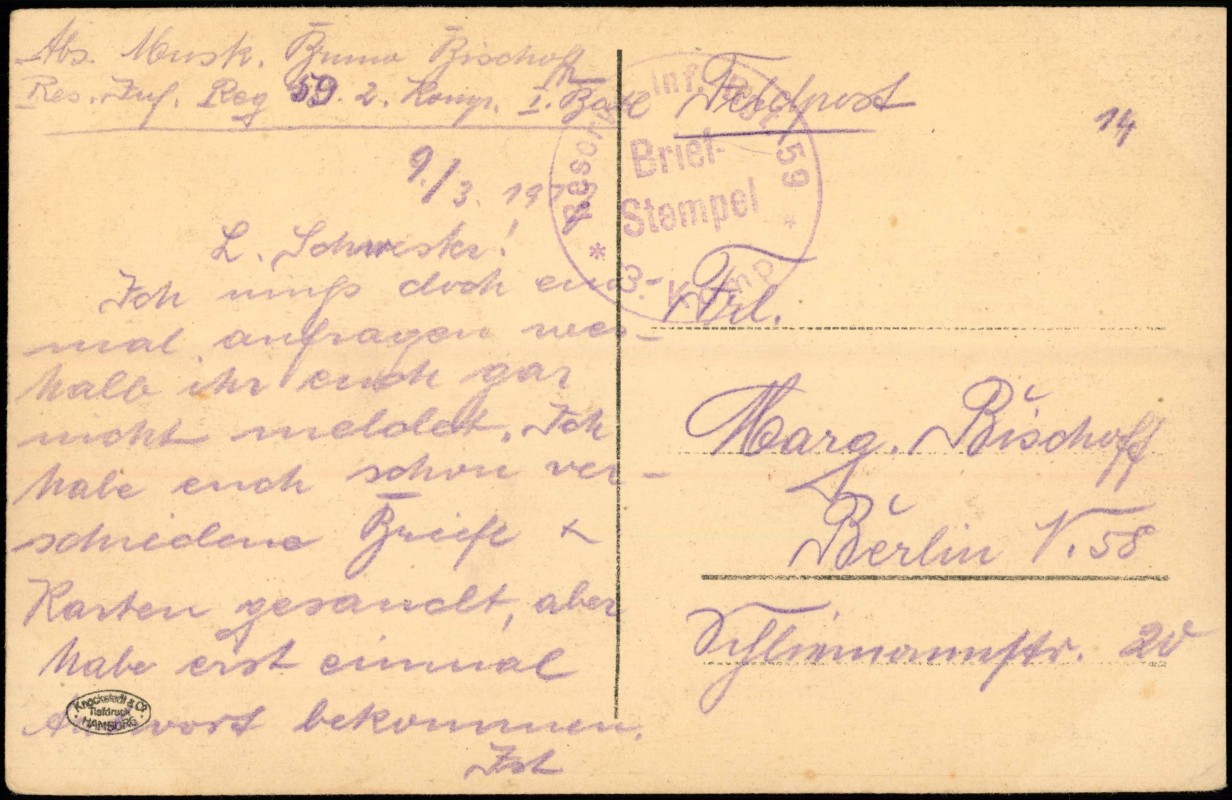 Abs. Musk. Bruno Bischoff
Res. Inf. Reg 59. 2. Komp. I. Batl
9./3. 19
L. Schwester!
Ich muß doch ein
mal anfragen wes-
halb ihr euch gar
nicht meldet. Ich
habe euch schon ver-
schiedene Briefe &
Karten gesandt, aber
habe erst einmal
Antwort bekommen.
Ist
Knackstedt & Co
Tiefdruck
HAMBURG
Feldpost
14
Reserve Inf. Regt. 59
Brief-
Stempel
* 3. Komp. *
Frl.
Marg. Bischoff
Berlin N. 58
Schliemannstr. 20